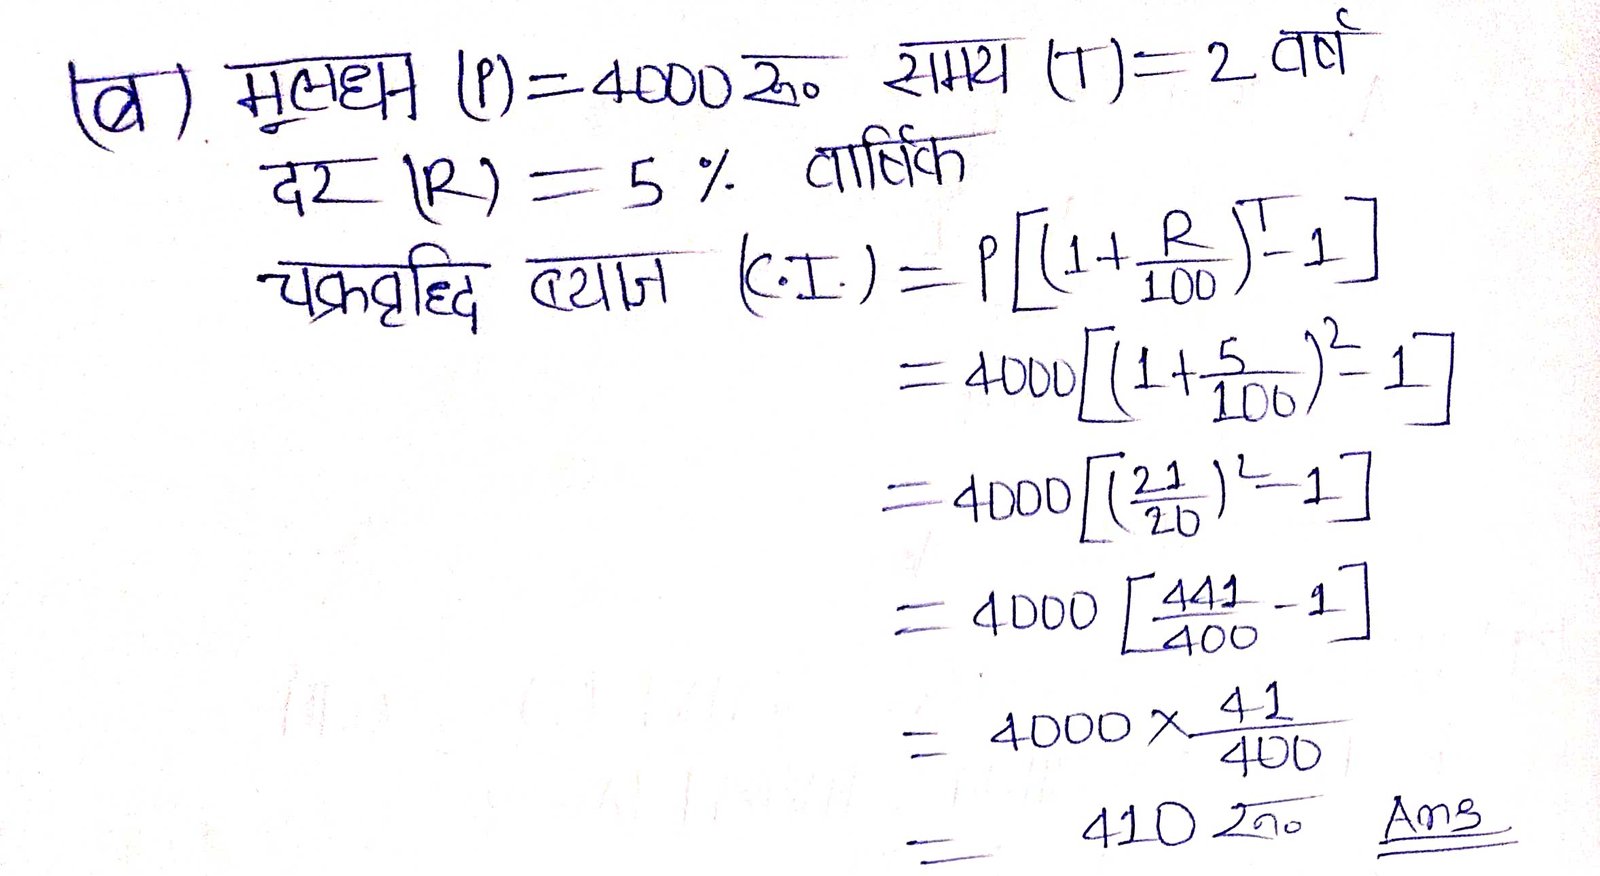 (ब) मूलधन (P) = 4000 रू० समय (T) = 2 वर्ष
दर (R) = 5 % वार्षिक
चक्रवृद्धि ब्याज (C.I.) = P[(1 + R/100)^T - 1]
= 4000[(1 + 5/100)^2 - 1]
= 4000[(21/20)^2 - 1]
= 4000 [441/400 - 1]
= 4000 × 41/400
= 410 रू० Ans